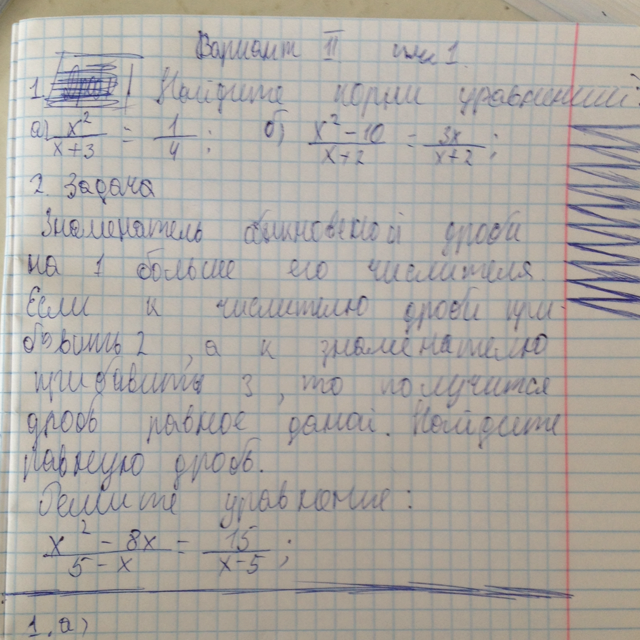 Вариант II
1. Найдите корни уравнений:
а) x²/x+3 = 1/4; б) x²-10/x+2 = 3x/x+2;
2 Задача
Знаменатель обыкновеной дроби
на 1 больше его числителя
Если к числителю дроби при-
бавить 2, а к знаменателю
придавить 3, то получится
дроб равное даной. Найдите
равную дроб.
Решите уравнение:
x²-8x/5-x = 15/x-5;
1. а)